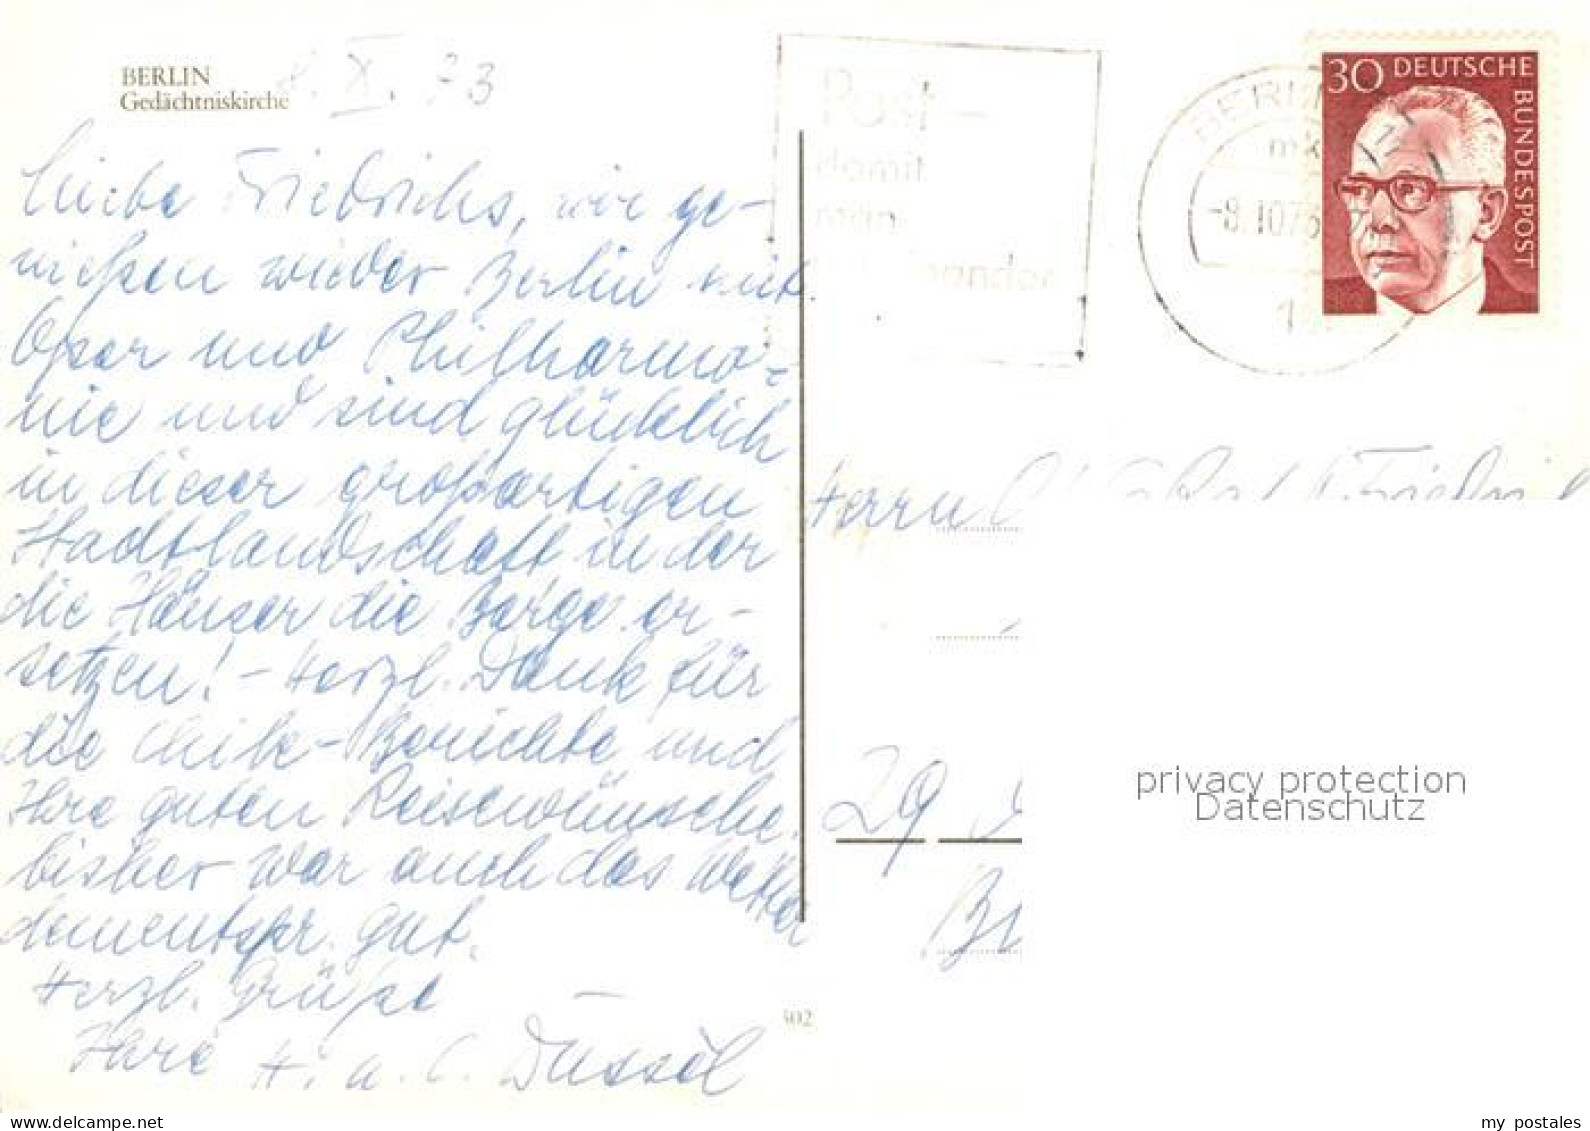 BERLIN
Gedächtniskirche
8. X. 73
Liebe Friedrichs, wir ge-
nießen wieder Berlin mit
Oper und Philharmo-
nie und sind glücklich
in dieser großartigen
Stadtlandschaft in der
die Häuser die Berge er-
setzen! - Herzl. Dank für
die Chile-Berichte und
Ihre guten Reisewünsche.
bisher war auch das Wetter
dementspr. gut.
Herzl. Grüße
Ihre H. u. C.
302
Post
damit
BERLIN
-8.10.73
30 DEUTSCHE
BUNDESPOST
Herrn
29
privacy protection
Datenschutz
my postales